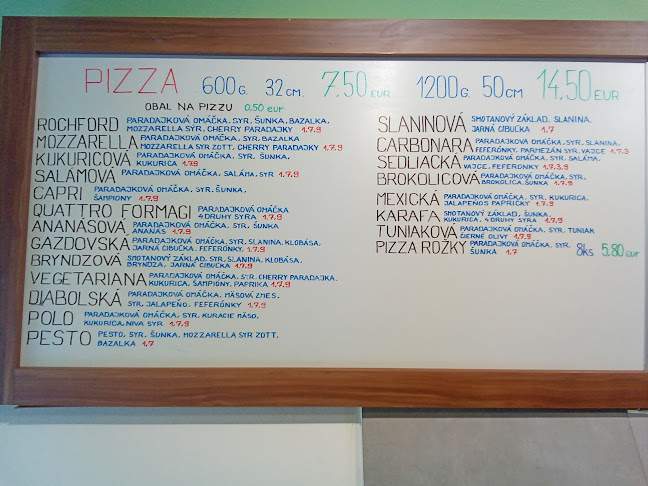 PIZZA 600G. 32 CM. 7.50 EUR 1200G. 50CM 14.50 EUR
OBAL NA PIZZU 0.50 eur
ROCHFORD PARADAJKOVÁ OMÁČKA, SYR, ŠUNKA, BAZALKA,
MOZZARELLA SÝR, CHERRY PARADAJKY 1.7.9
MOZZARELLA PARADAJKOVÁ OMÁČKA, SYR, BAZALKA
MOZZARELLA SYR ZOTT, CHERRY PARADAJKY 1.7.9
KUKURICOVÁ PARADAJKOVÁ OMÁČKA, SYR, ŠUNKA,
KUKURICA 1.7.9
SALÁMOVÁ PARADAJKOVÁ OMÁČKA, SALÁMA, SYR 1.7.9
CAPRI PARADAJKOVÁ OMÁČKA, SYR, ŠUNKA,
ŠAMPIÓNY 1.7.9
QUATTRO FORMAGI PARADAJKOVÁ OMÁČKA
4 DRUHY SYRA 1.7.9
ANANÁSOVÁ PARADAJKOVÁ OMÁČKA, SYR, ŠUNKA
ANANÁS 1.7.9
GAZDOVSKÁ PARADAJKOVÁ OMÁČKA, SYR, SLANINA, KLOBÁSA,
JARNÁ CIBUĽKA, FEFERÓNKY 1.7.9
BRYNDZOVÁ SMOTANOVÝ ZÁKLAD, SYR, SLANINA, KLOBÁSA,
BRYNDZA, JARNÁ CIBUĽKA 1.7.9
VEGETARIANA PARADAJKOVÁ OMÁČKA, SYR, CHERRY PARADAJKA,
KUKURICA, ŠAMPIÓNY, PAPRIKA 1.7.9
DIABOLSKÁ PARADAJKOVÁ OMÁČKA, MÄSOVÁ ZMES,
SYR, JALAPEŇO, FEFERÓNKY 1.7.9
POLO PARADAJKOVÁ OMÁČKA, SYR, KURACIE MÄSO,
KUKURICA, NIVA SYR 1.7.9
PESTO PESTO, SYR, ŠUNKA, MOZZARELLA SYR ZOTT,
BAZALKA 1.7
SLANINOVÁ SMOTANOVÝ ZÁKLAD, SLANINA,
JARNÁ CIBUĽKA 1.7
CARBONARA PARADAJKOVÁ OMÁČKA, SYR, SLANINA,
FEFERÓNKY, PARMEZÁN SYR, VAJCE 1.7.3
SEDLIACKA PARADAJKOVÁ OMÁČKA, SYR, SALÁMA,
VAJCE, FEFERONKY 1.7.3.9
BROKOLICOVÁ PARADAJKOVÁ OMÁČKA, SYR,
BROKOLICA, ŠUNKA 1.7.9
MEXICKÁ PARADAJKOVÁ OMÁČKA, SYR, ŠUNKA, KUKURICA,
JALAPENOS PAPRIČKY 1.7.9
KARAFA SMOTANOVÝ ZÁKLAD, ŠUNKA,
KUKURICA, 4 DRUHY SYRA 1.7.9
TUNIAKOVA PARADAJKOVÁ OMÁČKA, SYR, TUNIAK
ČIERNE OLIVY 1.7.9
PIZZA ROŽKY PARADAJKOVÁ OMÁČKA, SYR, 8ks 5.80 EUR
ŠUNKA 1.7